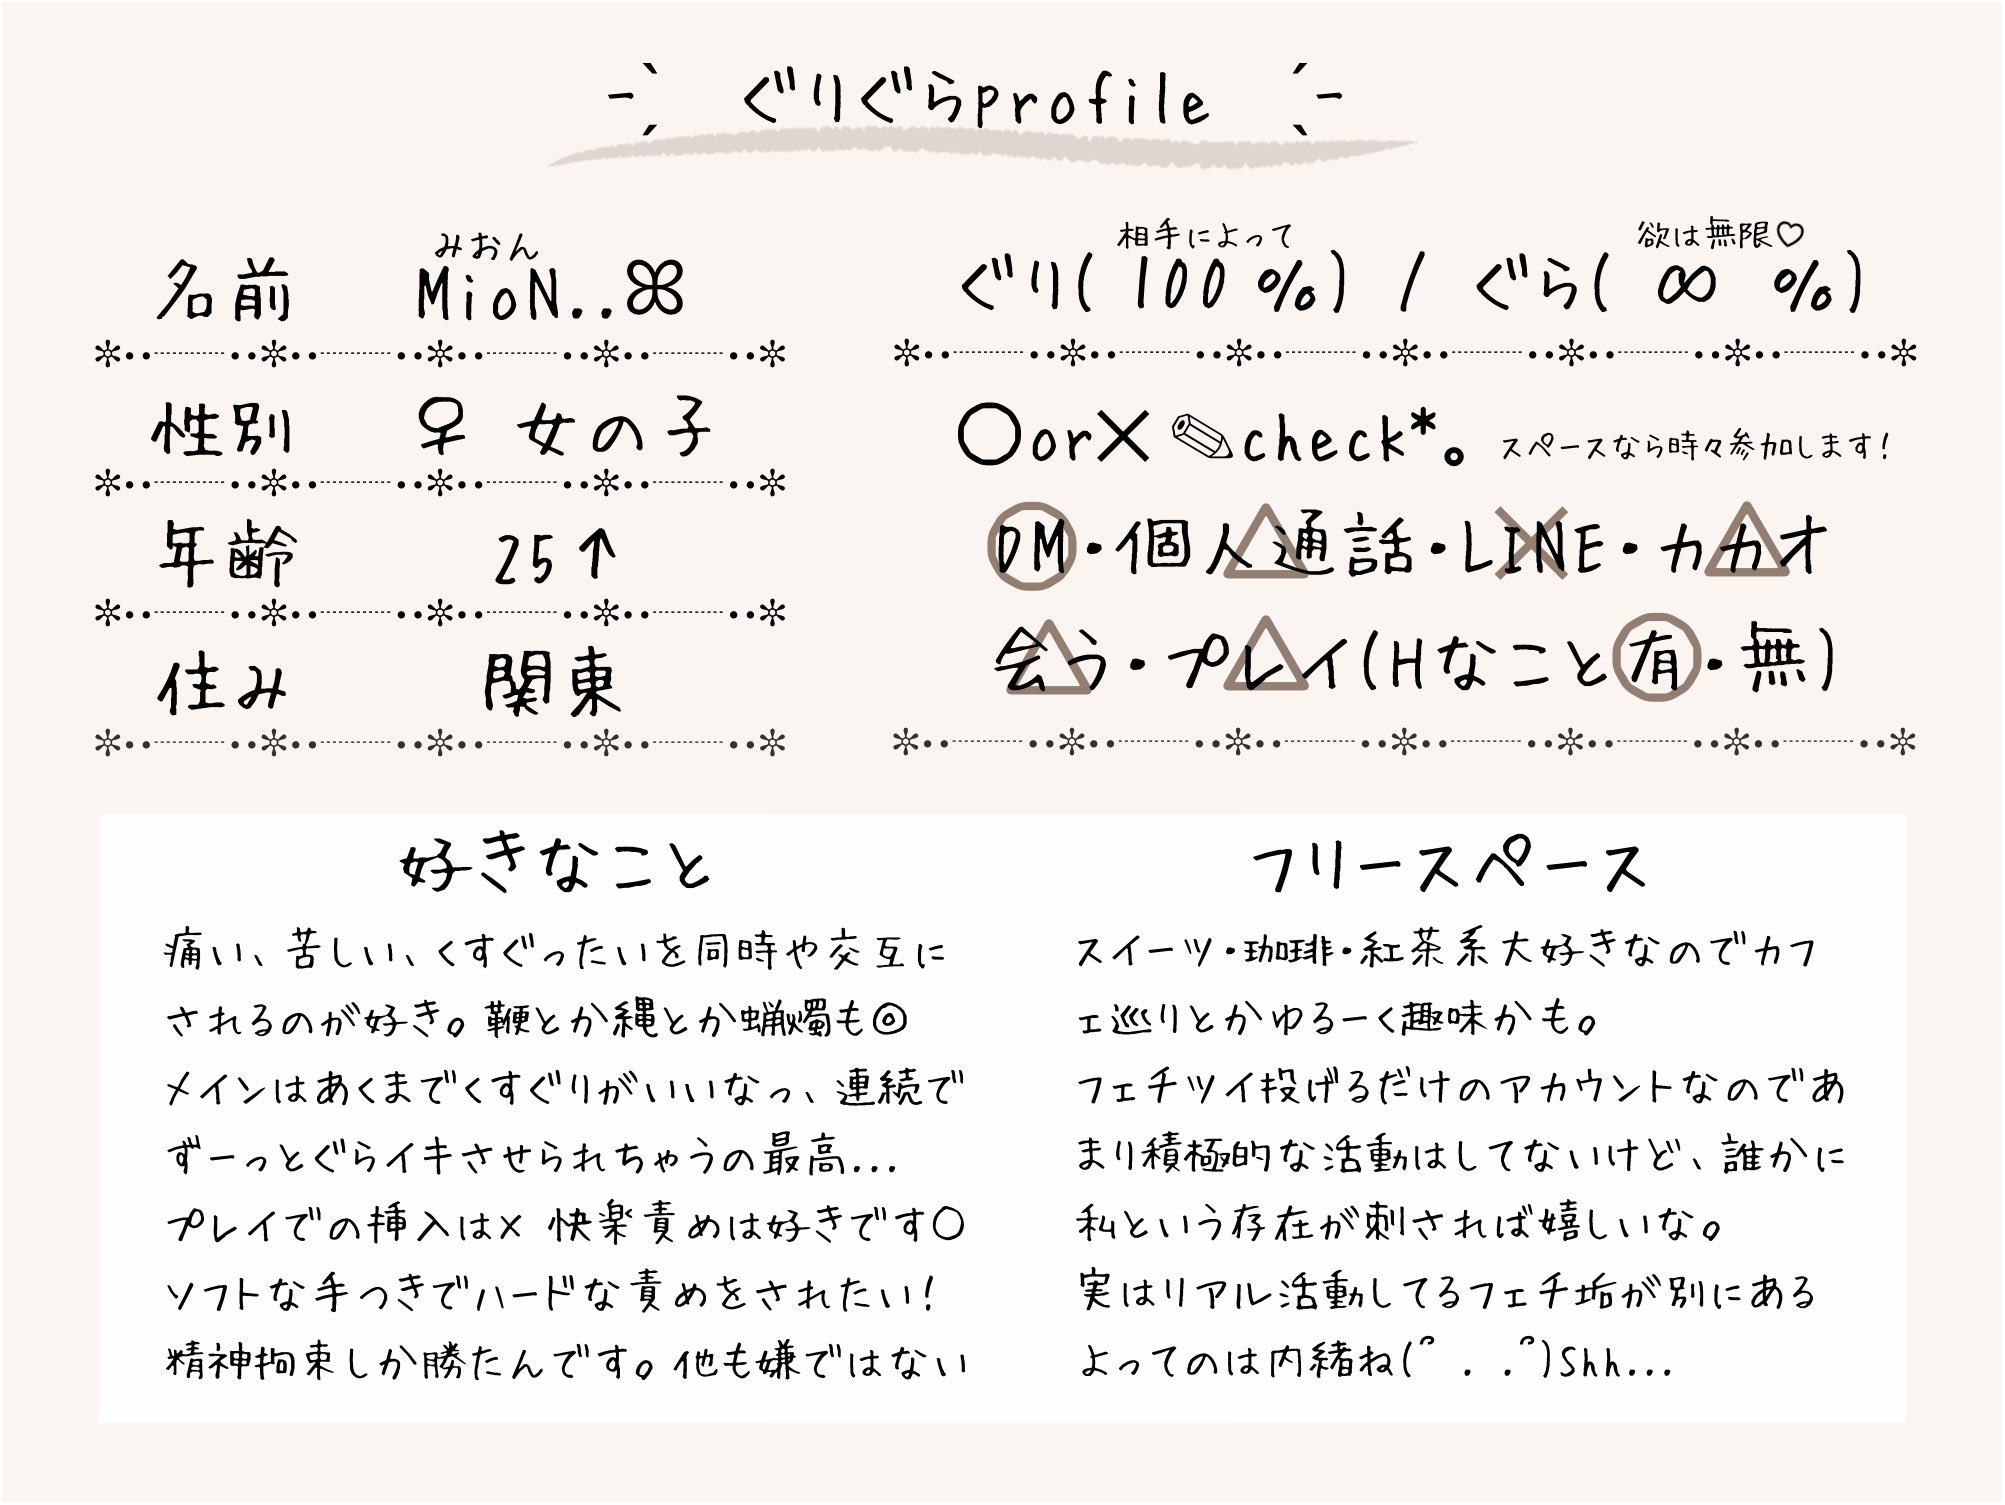 ぐりぐらprofile
みおん
名前 MioN..
性別 ♀ 女の子
年齢 25↑
住み 関東
相手によって 欲は無限♡
ぐり( 100 %) / ぐら( ∞ %)
○or×✎check*。スペースなら時々参加します!
DM・個人通話・LINE・カカオ
会う・プレイ(Hなこと有・無)
好きなこと
痛い、苦しい、くすぐったいを同時や交互に
されるのが好き。鞭とか縄とか蝋燭も◎
メインはあくまでくすぐりがいいなっ、連続で
ずーっとぐらイキさせられちゃうの最高...
プレイでの挿入は× 快楽責めは好きです○
ソフトな手つきでハードな責めをされたい!
精神拘束しか勝たんです。他も嫌ではない
フリースペース
スイーツ・珈琲・紅茶系大好きなのでカフ
ェ巡りとかゆるーく趣味かも。
フェチツイ投げるだけのアカウントなのであ
まり積極的な活動はしてないけど、誰かに
私という存在が刺されば嬉しいな。
実はリアル活動してるフェチ垢が別にある
よってのは内緒ね(՞ . .՞)Shh...